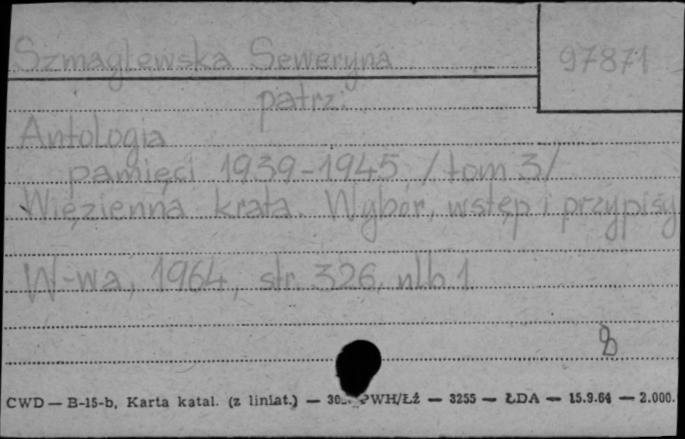 Szmaglewska Seweryna 97871
patrz:
Antologia
pamięci 1939-1945 /tom 3/
Więzienna krata. Wybór, wstęp i przypisy
W-wa, 1964, str. 326, nlb 1
8
CWD — B-15-b, Karta katal. (z liniat.) — PWH/Łź — 3255 — ŁDA — 15.9.64 — 2.000.